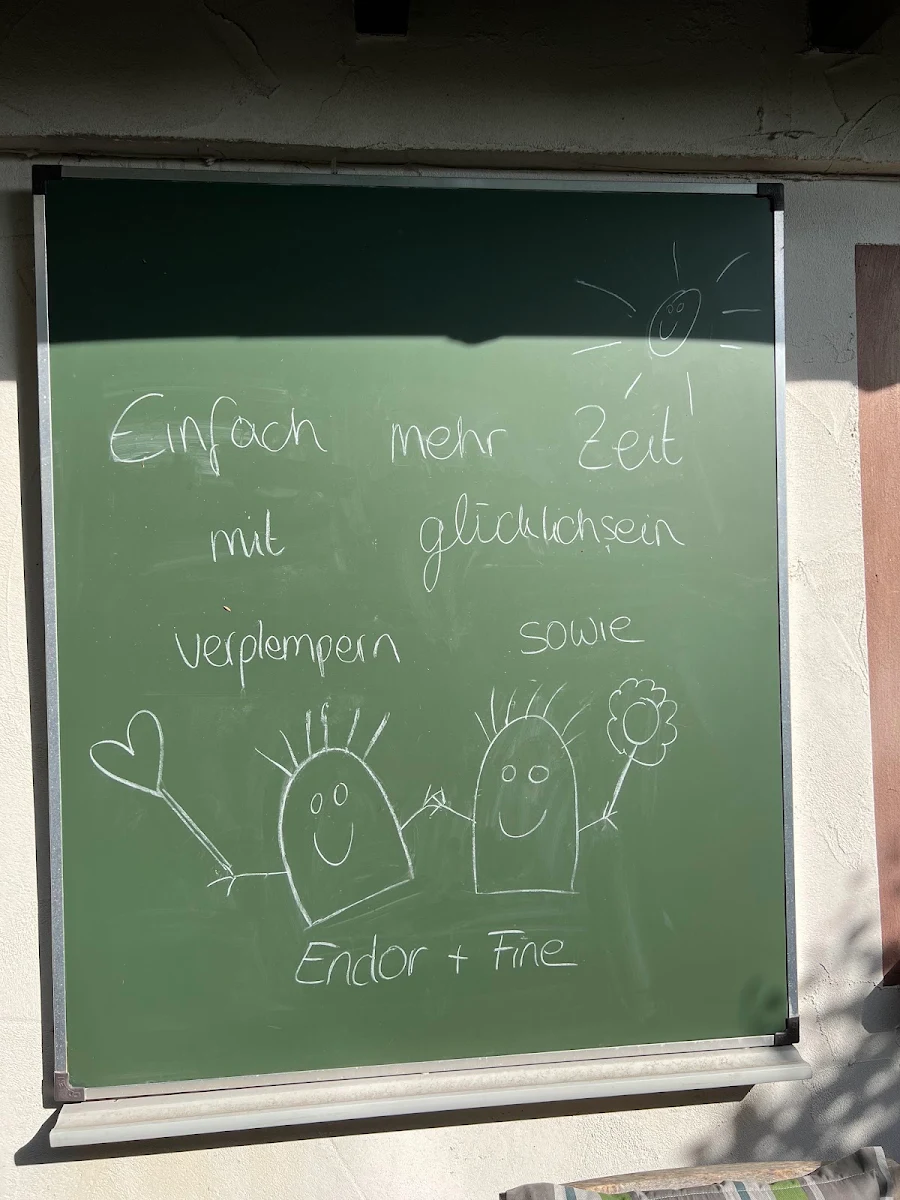 Einfach mehr Zeit
mit glücklichsein
verplempern sowie
Endor + Fine